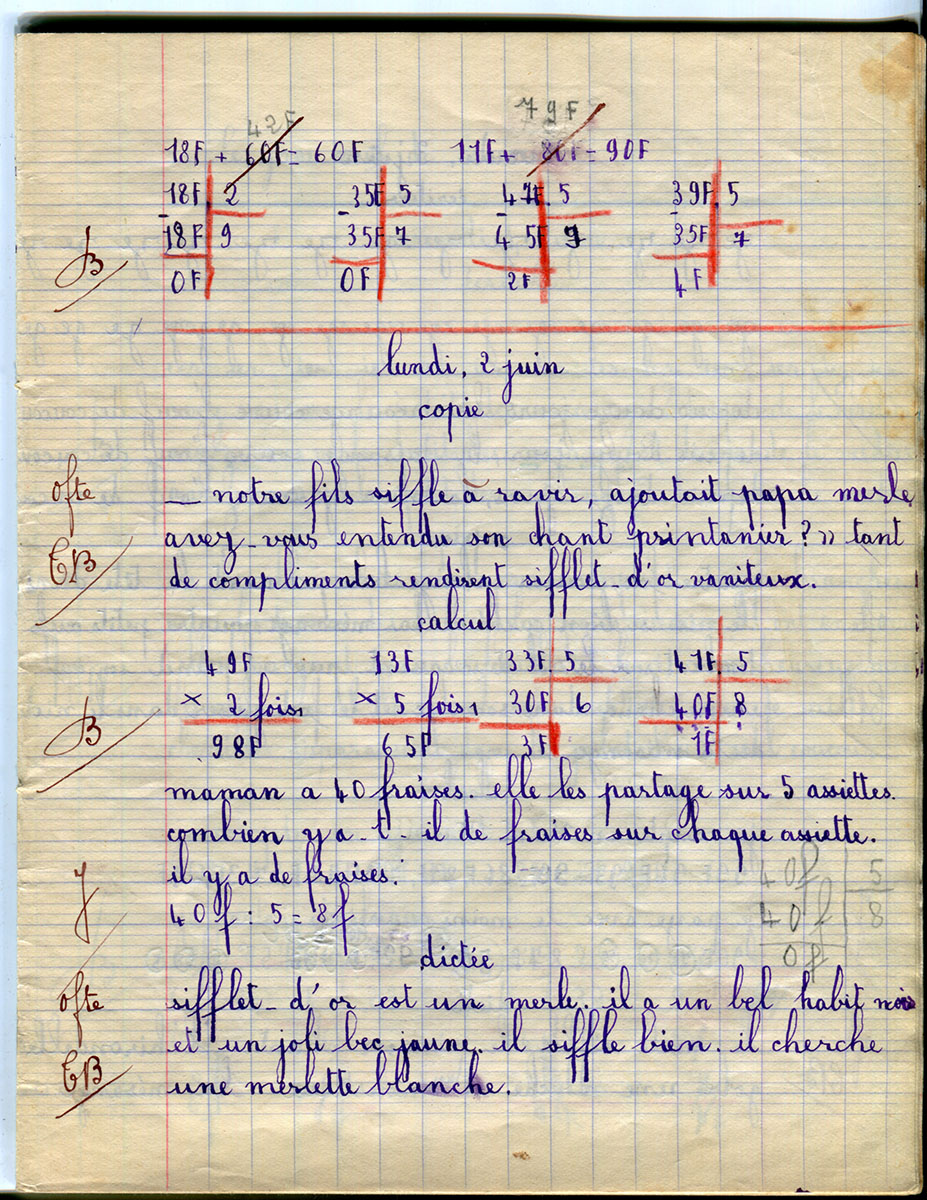 42F 79F
18F + 60F = 60F 11F + 80F = 90F
18F 2 35F 5 47F 5 39F 5
- 18F 9 - 35F 7 - 45F 9 - 35F 7
B
0F 0F 2F 4F
lundi, 2 juin
copie
_ notre fils siffle à ravir, ajoutait papa merle
avez-vous entendu son chant printanier ? » tant
TB
de compliments rendirent sifflet-d'or vaniteux.
calcul
49F 13F 33F 5 41F 5
× 2 fois × 5 fois 30F 6 40F 8
B
98F 65F 3F 1F
maman a 40 fraises. elle les partage sur 5 assiettes.
combien y a-t-il de fraises sur chaque assiette.
il y a de fraises : 40f 5
40f : 5 = 8f 40f 8
0f
dictée
sifflet-d'or est un merle. il a un bel habit noir
et un joli bec jaune. il siffle bien. il cherche
TB
une merlette blanche.